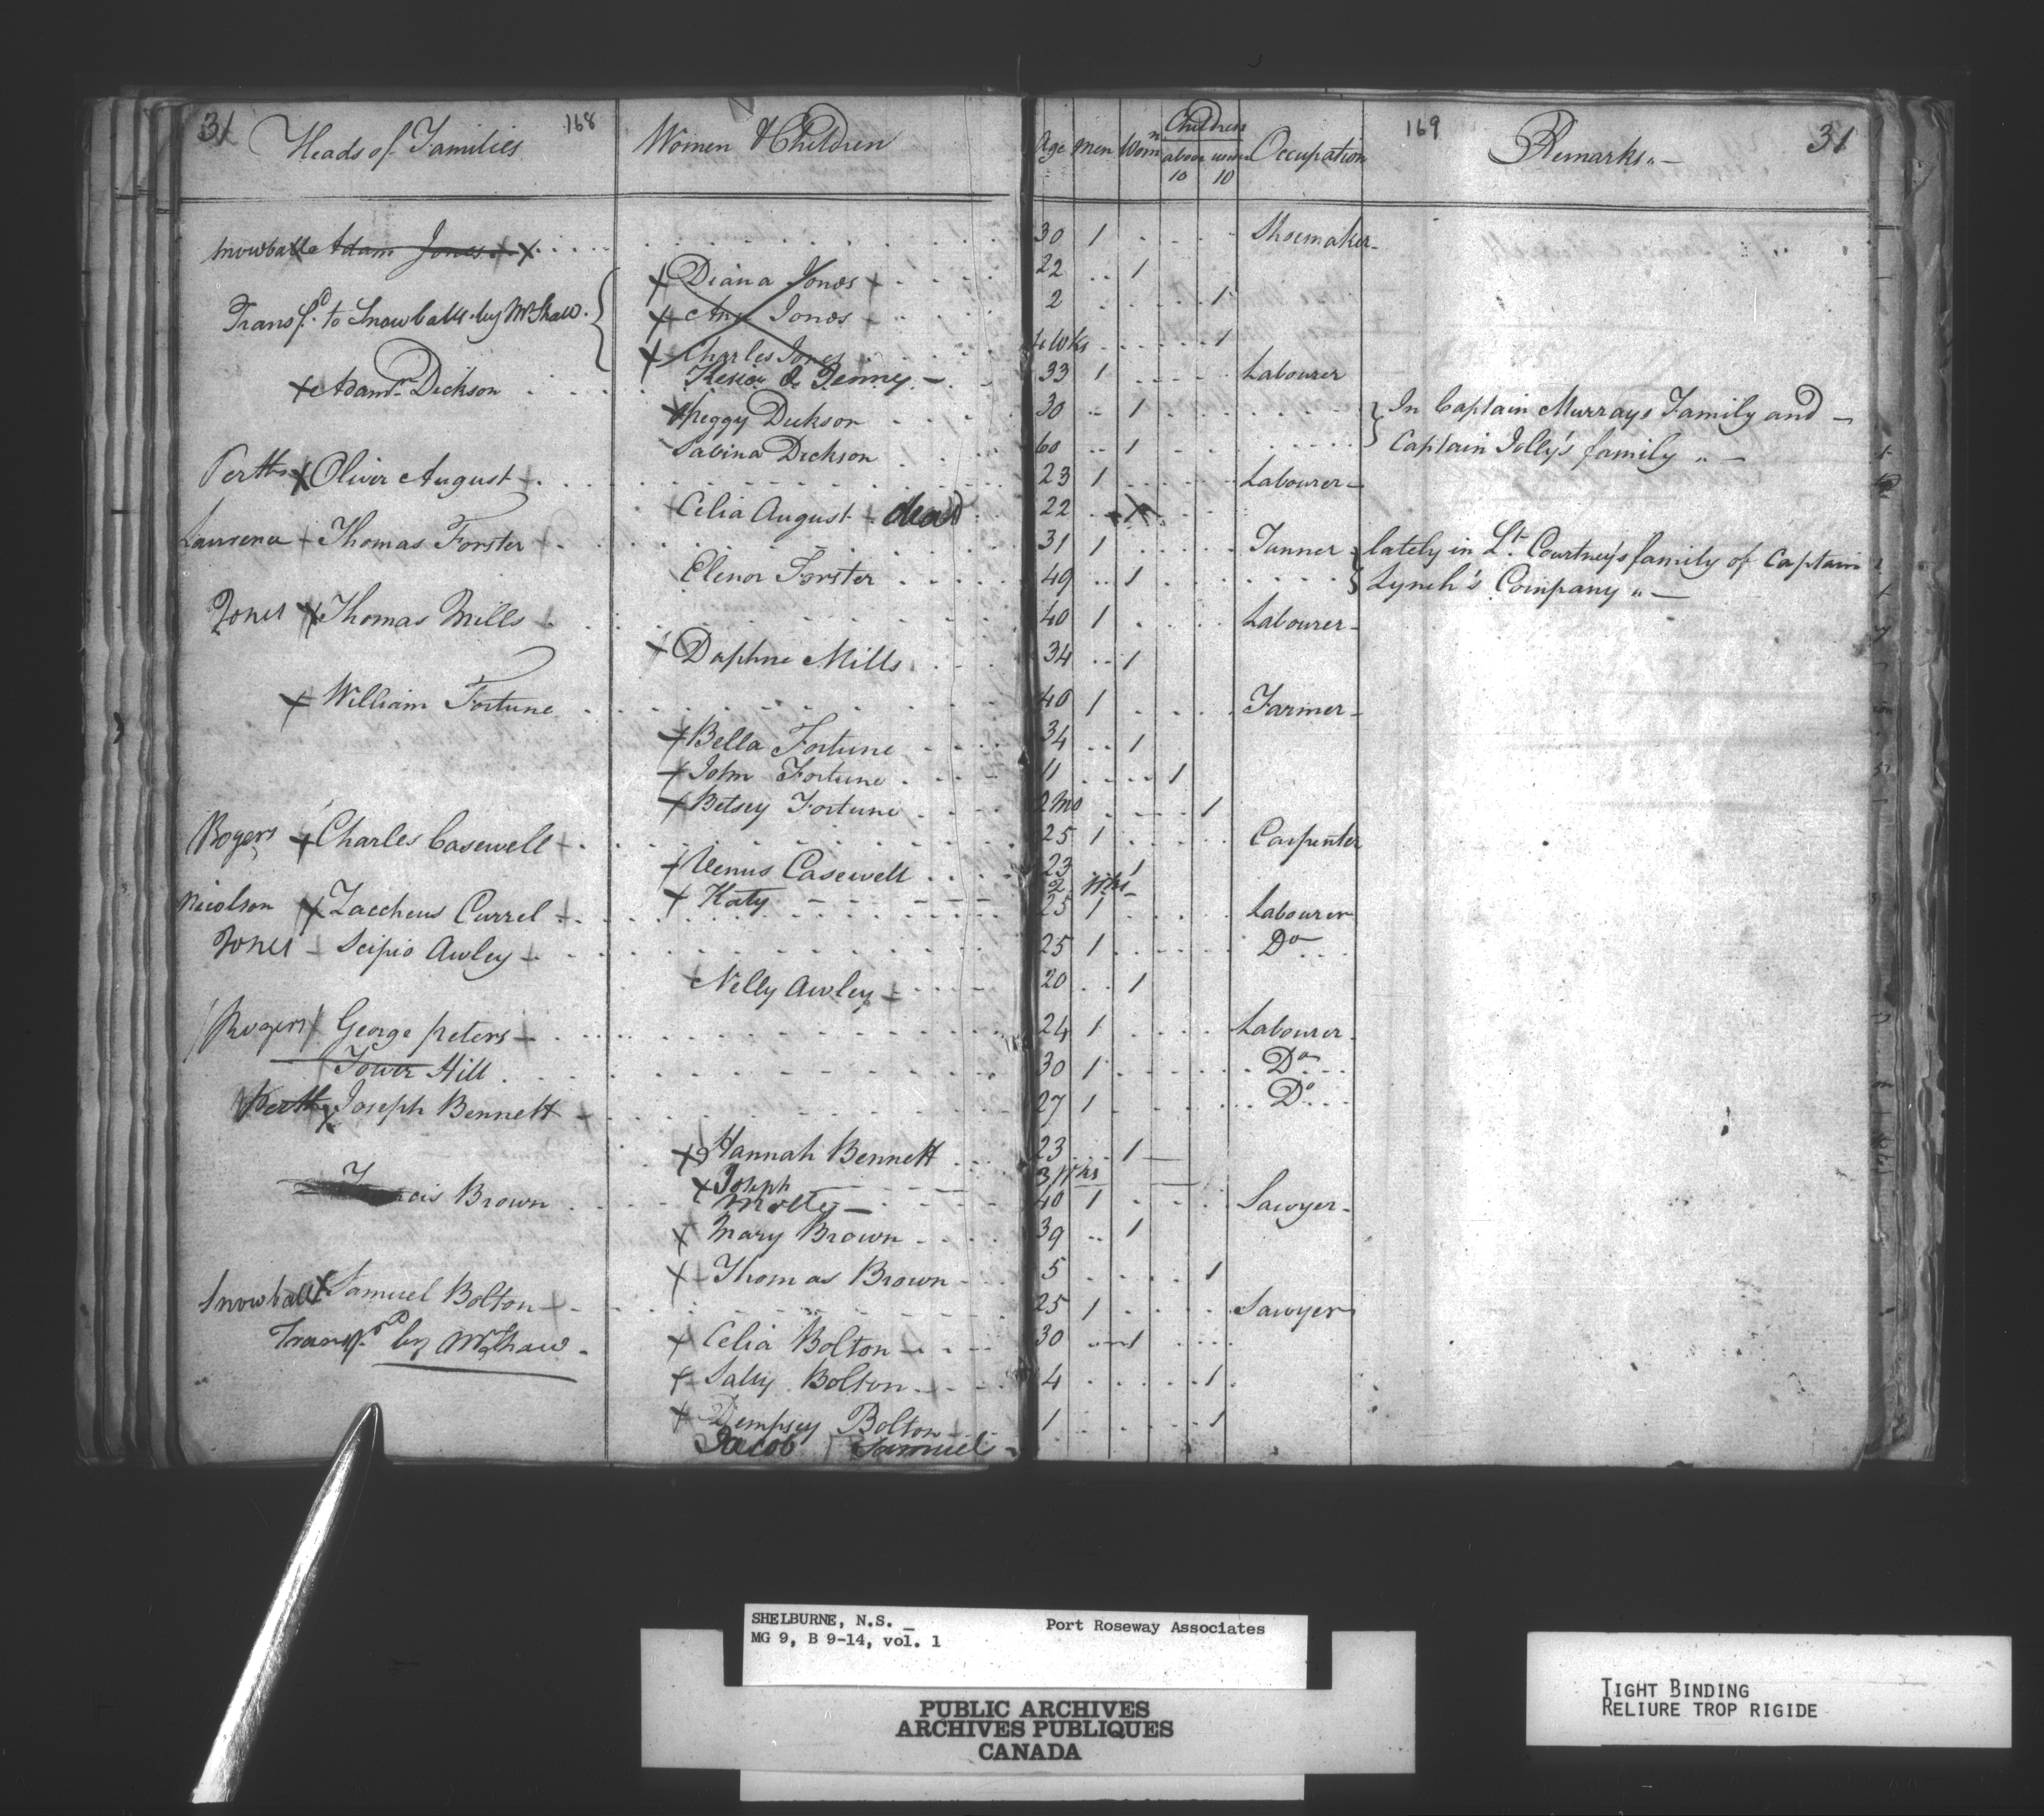 31 Heads of Families 168 Women & Children Age Men Womn Children above 10 under 10 Occupation 169 Remarks 31
Snowballs Adam Jones 30 1 Shoemaker
Diana Jones 22 1
Transfd. to Snowballs by Mr Shaw
Ann Jones 2 1
Charles Jones 4 Wks 1
Adam Dickson 33 1 Labourer
Kesia & Jenney
Peggy Dickson 30 1 In Captain Murrays Family and
Sabina Dickson 60 1 Captain Jolly's family
Perths Oliver August 23 1 Labourer
Celia August dead 22 1
Laurence Thomas Forster 31 1 Tanner lately in Lt. Courtney's family of Captain
Elenor Forster 49 1 Lynch's Company
Jones Thomas Mills 40 1 Labourer
Daphne Mills 34 1
William Fortune 40 1 Farmer
Bella Fortune 34 1
John Fortune 11 1
Betsey Fortune 2 mo 1
Rogers Charles Casewell 25 1 Carpenter
Venus Casewell 23 1
Katy 2 Wks
Nicolson Zaccheus Currel 25 1 Labourer
Jones Scipio Awley 25 1 Do
Nelly Awley 20 1
Rogers George Peters 24 1 Labourer
Tower Hill 30 1 Do
Perth Joseph Bennett 27 1 Do
Hannah Bennett 23 1
Joseph 3 Wks
Brown 40 1 Sawyer
Molly
Mary Brown 39 1
Thomas Brown 5 1
Snowball Samuel Bolton 25 1 Sawyer
Transfd by Mr Shaw
Celia Bolton 30 1
Sally Bolton 4 1
Dempsey Bolton 1 1
Jacob Samuel
SHELBURNE, N.S. Port Roseway Associates
MG 9, B 9-14, vol. 1
PUBLIC ARCHIVES
ARCHIVES PUBLIQUES
CANADA
TIGHT BINDING
RELIURE TROP RIGIDE